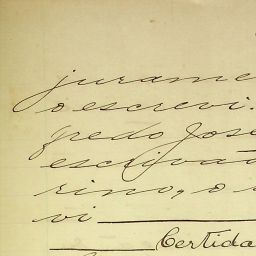 jurame
o escrevi.
fredo José
escrivão
rino, o
vi
Certida